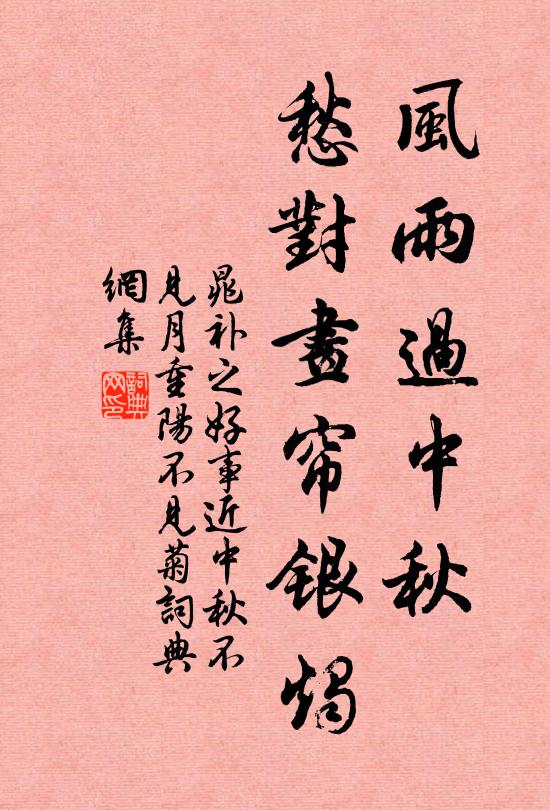 風雨過中秋
愁對畫帘銀燭
晁补之好事近中秋不
見月重陽不見菊詞典
網集
詞典
网印